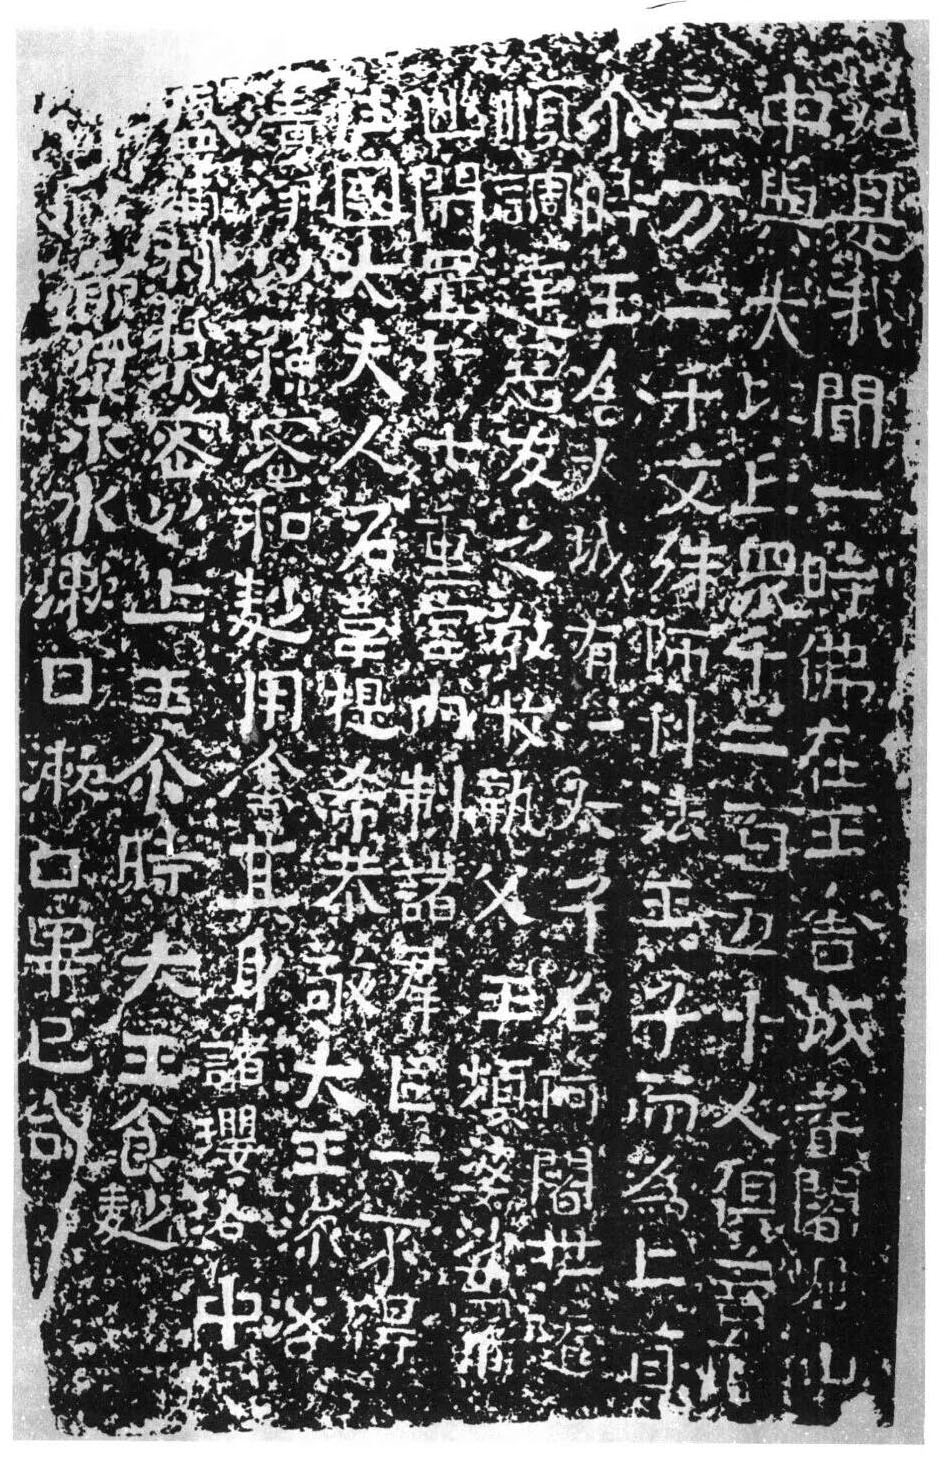 如是我聞一時佛在王舍城耆闍崛山
中與大比丘眾千二百五十人俱菩薩
三万二千文殊師利法王子而為上首
尒時王舍大城有一太子名阿闍世隨
順調達惡友之教收執父王頻婆娑羅
幽閉置於七重室內制諸羣臣一不得
往國大夫人名韋提希恭敬大王澡浴
清淨以蘇蜜和麨用塗其身諸瓔珞中
盛蒲桃漿密以上王尒時大王食麨
飲漿求水漱口漱口畢已合